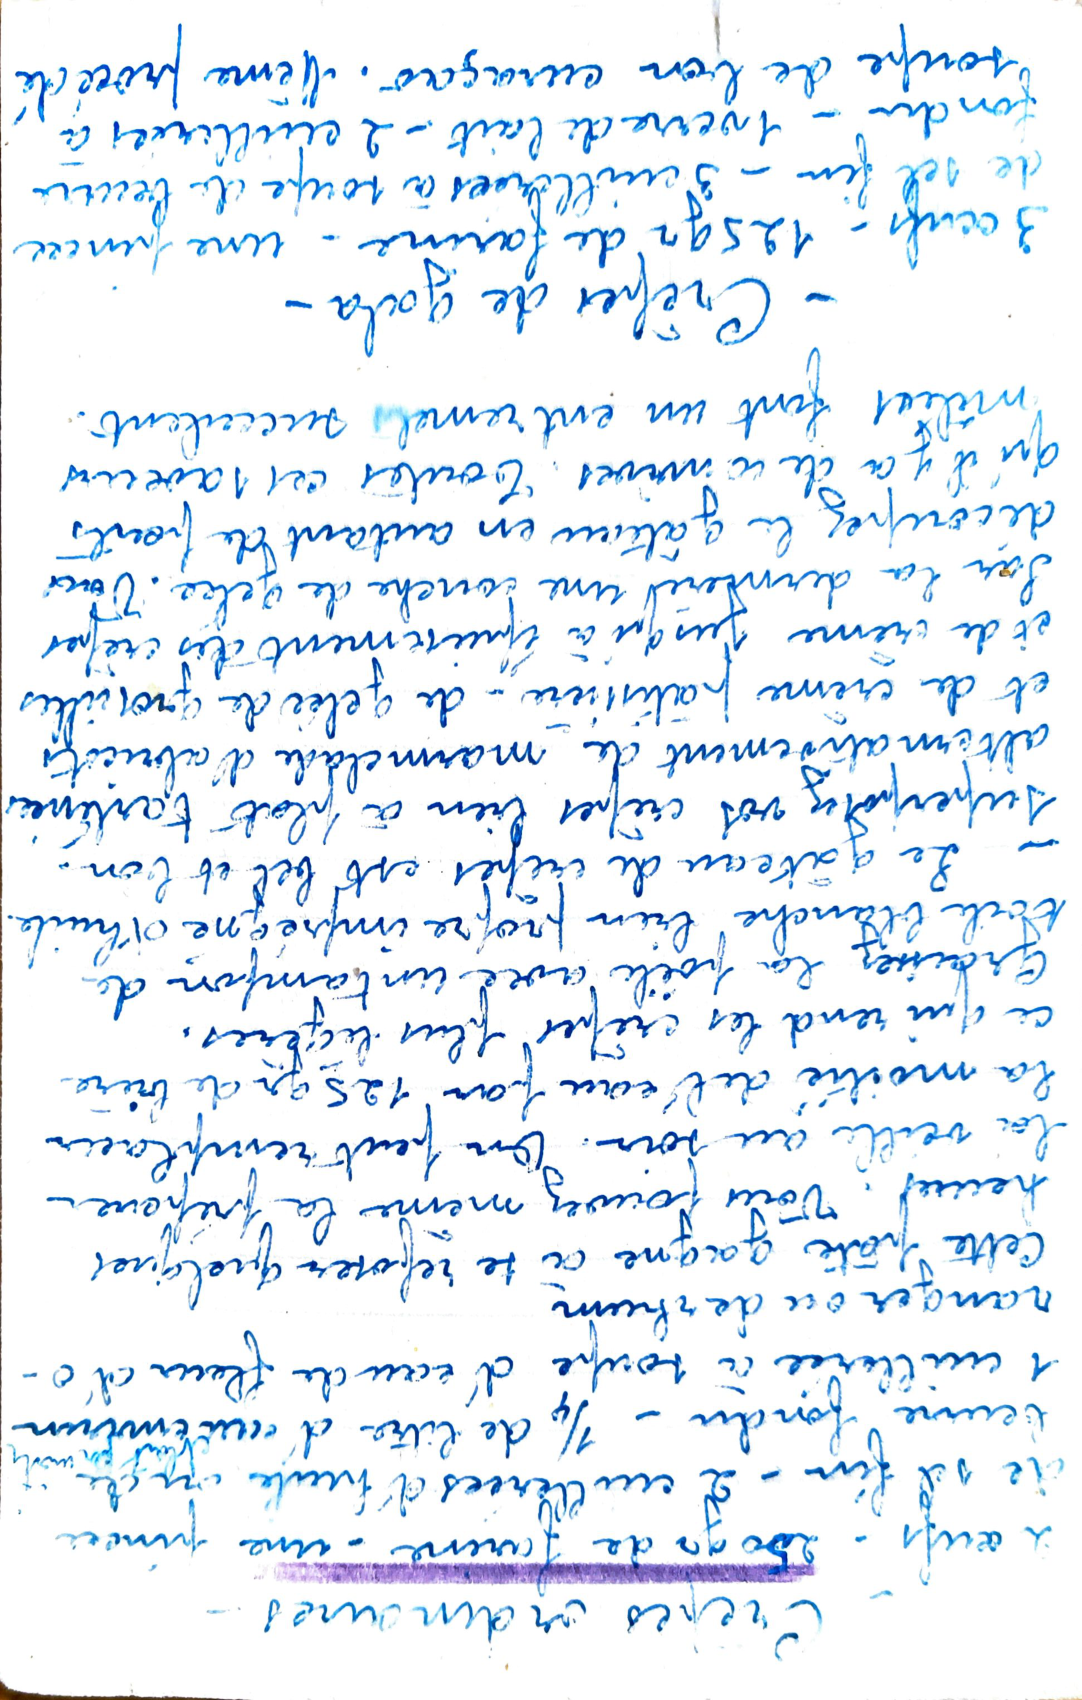 - Crêpes ordinaires -
2 œufs - 250 gr de farine - une pincée
de sel fin - 2 cuillères d'huile ou de
beurre fondu - 1/4 de litre d'eau environ
1 cuillerée à soupe d'eau de fleur d'o-
ranger ou de rhum
Cette pâte gagne à se reposer quelques
heures. Vous pouvez meme la préparer
la veille au soir. On peut remplacer
la moitié de l'eau par 125 gr de bière
ce qui rend les crêpes plus légères.
Graissez la poêle avec un tampon de
toile blanche bien propre imprégné d'huile.
- Le gâteau de crêpes est bel et bon.
Superposez vos crêpes bien à plat tartinées
alternativement de marmelade d'abricots
et de crème patissière - de gelée de groseilles
et de crème jusqu'à épuisement des crêpes
Sur la dernière une couche de gelée. Vous
découpez le gâteau en autant de parts
qu'il y a de convives. Toutes ces saveurs
mêlées font un entremets succulent.
- Crêpes de gala -
3 œufs - 125 gr de farine - une pincée
de sel fin - 3 cuillérées à soupe de beurre
fondu - 1 verre de lait - 2 cuillérées à
soupe de bon curaçao. Même procédé